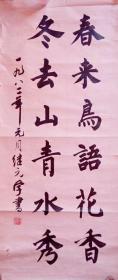 春来鳥語花香
冬去山青水秀
一九八二年元月继元学書